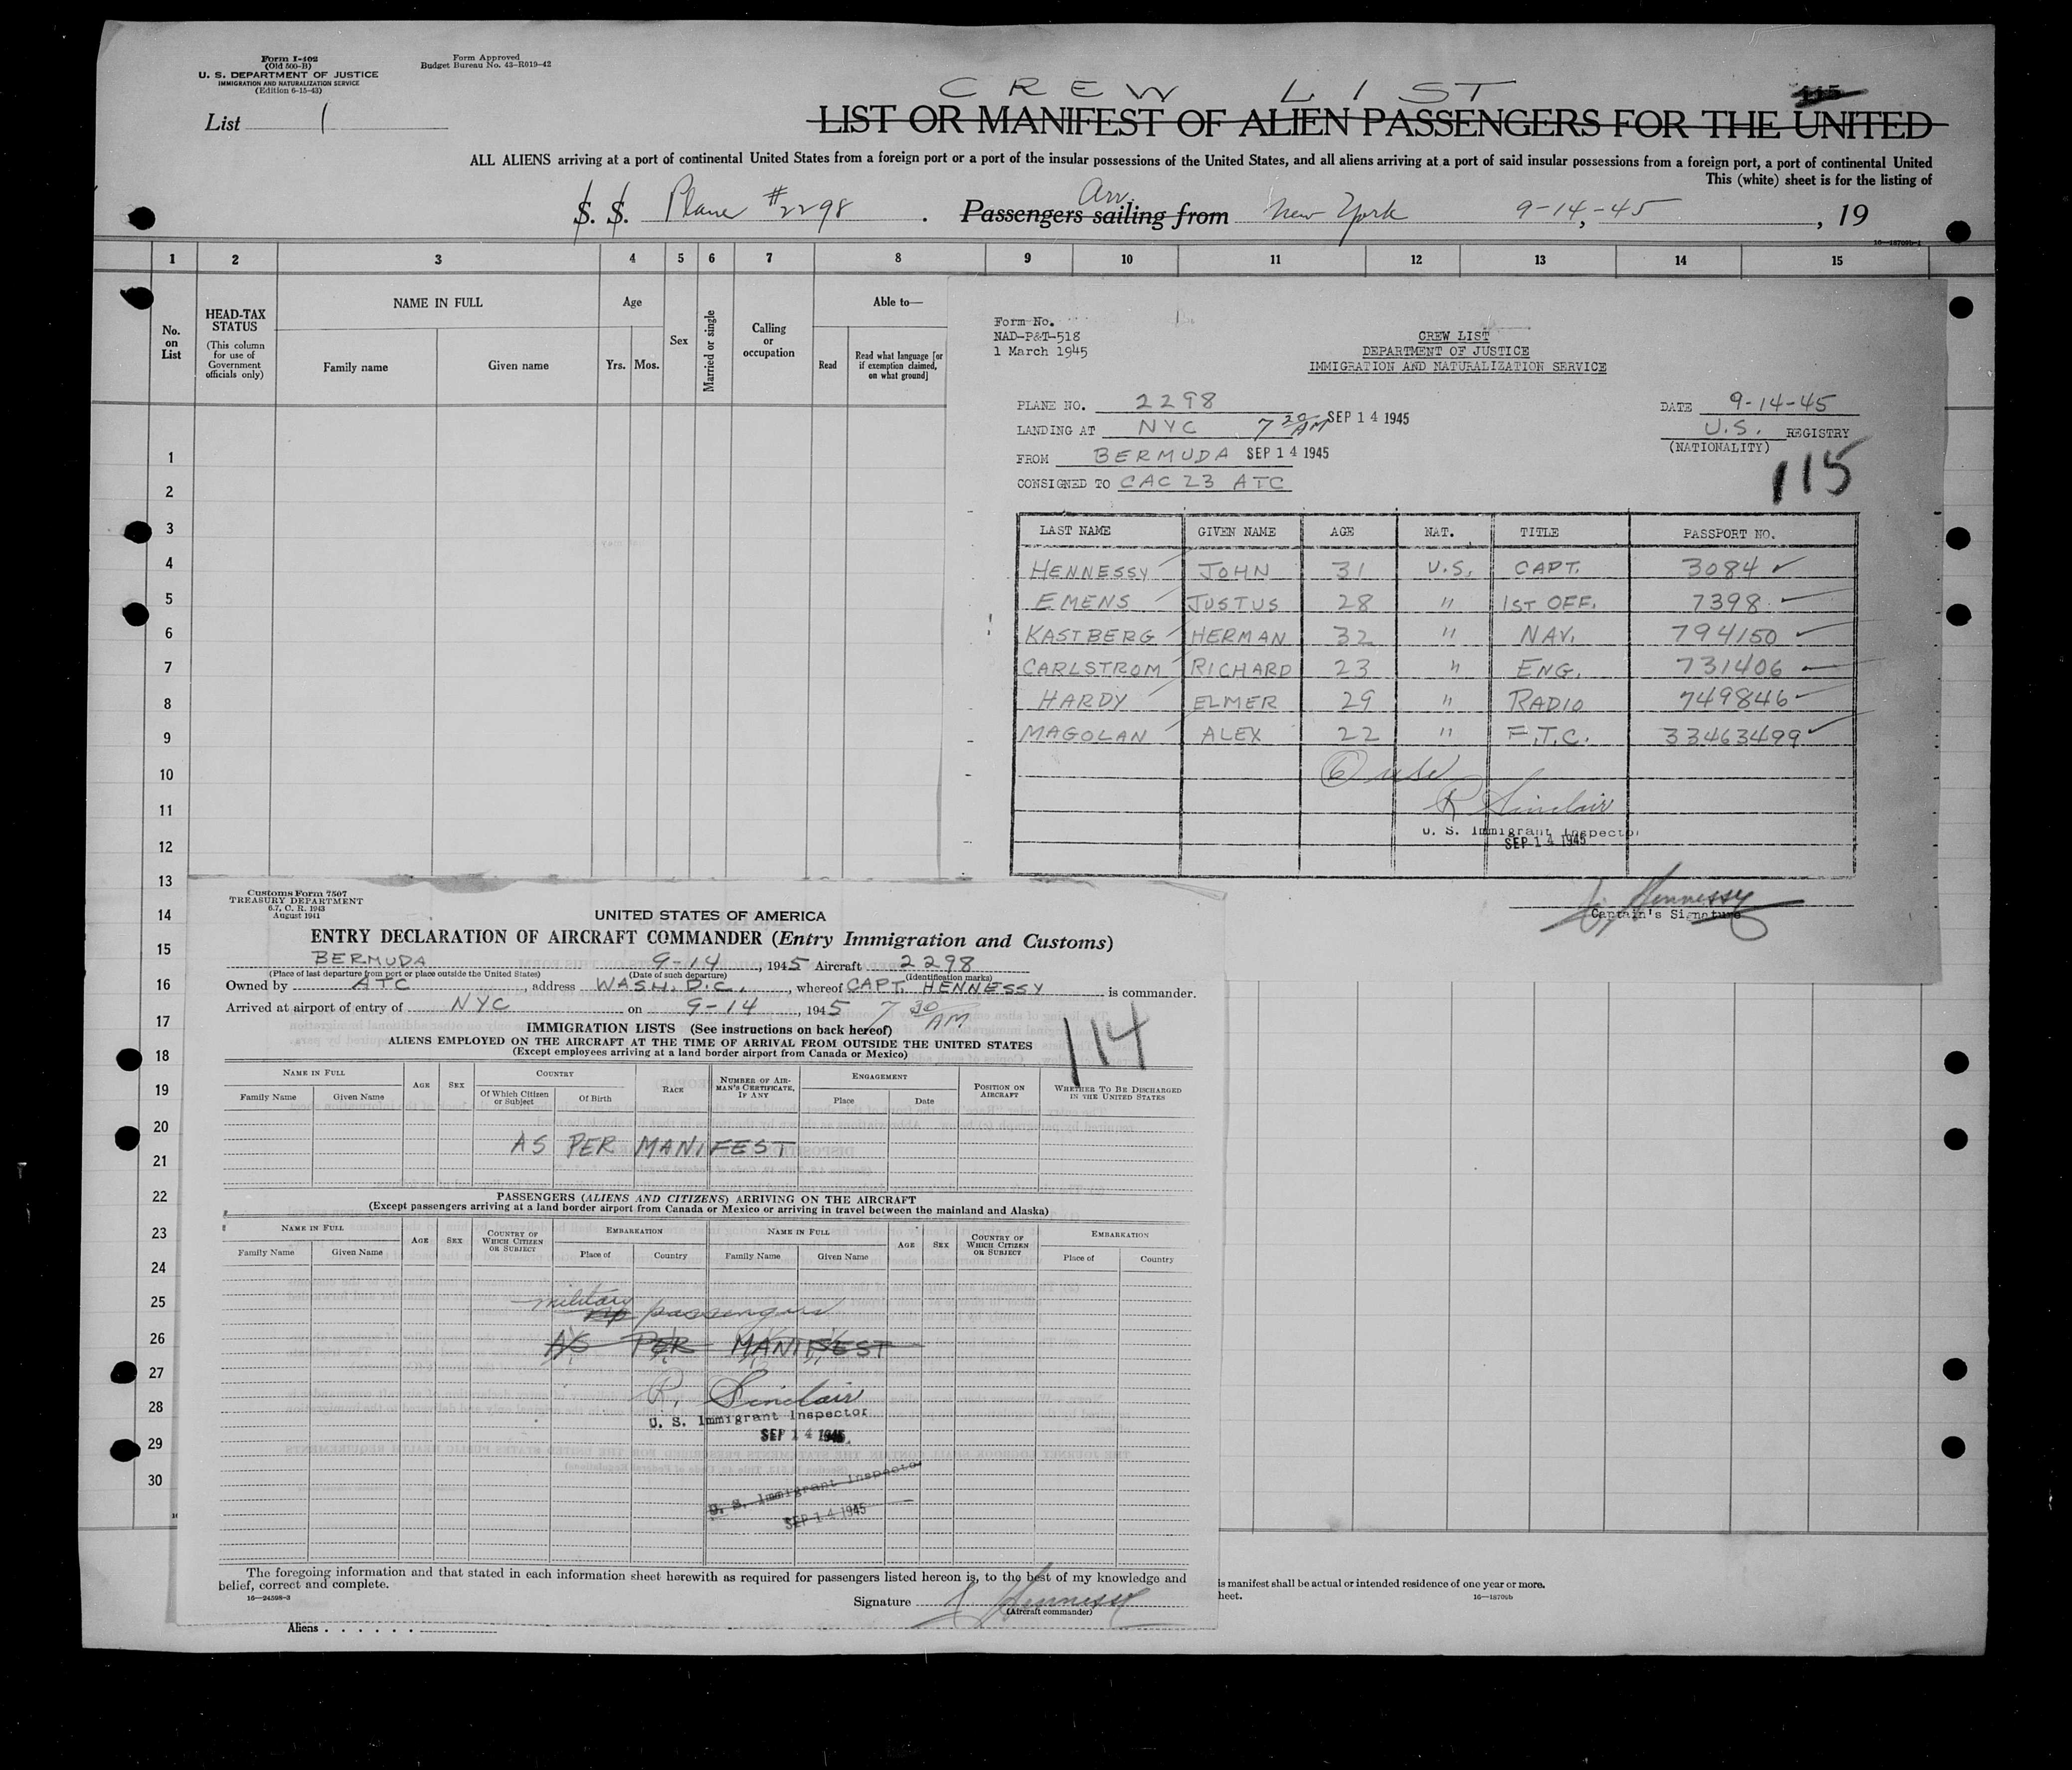 Form I-402
(Old 500-B)
U. S. DEPARTMENT OF JUSTICE
IMMIGRATION AND NATURALIZATION SERVICE
(Edition 6-15-43)
Form Approved
Budget Bureau No. 43-R019-42
List 1
CREW LIST
115
LIST OR MANIFEST OF ALIEN PASSENGERS FOR THE UNITED
ALL ALIENS arriving at a port of continental United States from a foreign port or a port of the insular possessions of the United States, and all aliens arriving at a port of said insular possessions from a foreign port, a port of continental United
This (white) sheet is for the listing of
S. S. Plane #2298. Passengers sailing from Arr. New York 9-14-45, 19
16—18709b-1
1 2 3 4 5 6 7 8 9 10 11 12 13 14 15
No. on List
HEAD-TAX STATUS
(This column for use of Government officials only)
NAME IN FULL
Family name Given name
Age
Yrs. Mos.
Sex
Married or single
Calling or occupation
Able to—
Read
Read what language [or if exemption claimed, on what ground]
1
2
3
4
5
6
7
8
9
10
11
12
13
14
15
16
17
18
19
20
21
22
23
24
25
26
27
28
29
30
Form No.
NAD-P&T-518
1 March 1945
CREW LIST
DEPARTMENT OF JUSTICE
IMMIGRATION AND NATURALIZATION SERVICE
PLANE NO. 2298
DATE 9-14-45
LANDING AT NYC 7 30 AM SEP 14 1945
U.S. REGISTRY
(NATIONALITY)
FROM BERMUDA SEP 14 1945
CONSIGNED TO CAC 23 ATC
115
LAST NAME GIVEN NAME AGE NAT. TITLE PASSPORT NO.
HENNESSY JOHN 31 U.S. CAPT. 3084
EMENS JUSTUS 28 " 1ST OFF. 7398
KASTBERG HERMAN 32 " NAV. 794150
CARLSTROM RICHARD 23 " ENG. 731406
HARDY ELMER 29 " RADIO 749846
MAGOLAN ALEX 22 " F.T.C. 33463499
6 usc
R Sinclair
U. S. Immigrant Inspector
SEP 14 1945
J. Hennessy
Captain's Signature
Customs Form 7507
TREASURY DEPARTMENT
6.7, C. R. 1943
August 1941
UNITED STATES OF AMERICA
ENTRY DECLARATION OF AIRCRAFT COMMANDER (Entry Immigration and Customs)
BERMUDA 9-14, 1945 Aircraft 2298
(Place of last departure from port or place outside the United States) (Date of such departure) (Identification marks)
Owned by ATC, address WASH. D.C., whereof CAPT. HENNESSY is commander.
Arrived at airport of entry of NYC on 9-14, 1945 7 30 AM
114
IMMIGRATION LISTS (See instructions on back hereof)
ALIENS EMPLOYED ON THE AIRCRAFT AT THE TIME OF ARRIVAL FROM OUTSIDE THE UNITED STATES
(Except employees arriving at a land border airport from Canada or Mexico)
NAME IN FULL
Family Name Given Name
AGE
SEX
COUNTRY
Of Which Citizen or Subject Of Birth
RACE
NUMBER OF AIRMAN'S CERTIFICATE, IF ANY
ENGAGEMENT
Place Date
POSITION ON AIRCRAFT
WHETHER TO BE DISCHARGED IN THE UNITED STATES
AS PER MANIFEST
PASSENGERS (ALIENS AND CITIZENS) ARRIVING ON THE AIRCRAFT
(Except passengers arriving at a land border airport from Canada or Mexico or arriving in travel between the mainland and Alaska)
NAME IN FULL AGE SEX COUNTRY OF WHICH CITIZEN OR SUBJECT EMBARKATION NAME IN FULL AGE SEX COUNTRY OF WHICH CITIZEN OR SUBJECT EMBARKATION
Family Name Given Name Place of Country Family Name Given Name Place of Country
military passengers
AS PER MANIFEST
R. Sinclair
U. S. Immigrant Inspector
SEP 14 1945
U. S. Immigrant Inspector
SEP 14 1945
The foregoing information and that stated in each information sheet herewith as required for passengers listed hereon is, to the best of my knowledge and
belief, correct and complete.
16—24598-3
Signature J Hennessy
(Aircraft commander)
Aliens
is manifest shall be actual or intended residence of one year or more.
heet.
16—18709b